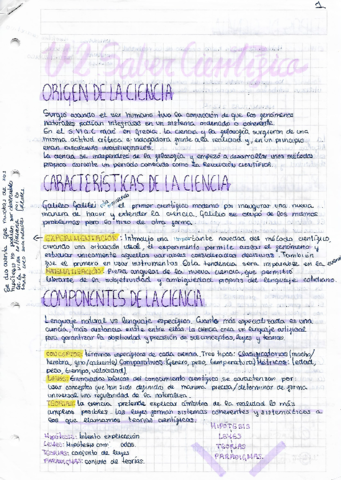 1
U2 Saber Científico
ORIGEN DE LA CIENCIA
Surgió cuando el ser humano tuvo la convicción de que los fenómenos
naturales podían integrarse en un sistema ordenado o coherente.
En el S.VI a.C nació en Grecia, la ciencia y la filosofía surgieron de una
misma actitud crítica e indagadora frente a la realidad y, en un principio
eran
La ciencia se independizó de la filosofía y empezó a desarrollar unos métodos
propios durante un periodo conocido como la Revolución científica.
CARACTERÍSTICAS DE LA CIENCIA
Galileo Galilei el primer científico moderno por inaugurar una nueva
manera de hacer y entender la ciencia. Galileo se ocupó de los mismos
problemas pero de otra forma.
EXPERIMENTACIÓN: Introdujo esa importante novedad del método científico,
creando una situación ideal, el experimento permite aislar el fenómeno y
estudiar únicamente aquellas variables consideradas decisivas. También
fue el primero en usar instrumentos
Pieza angular de la nueva ciencia, que permitió
librarse de la subjetividad y ambigüedad propias del lenguaje cotidiano.
COMPONENTES DE LA CIENCIA
Lenguaje natural vs lenguaje específico. Cuanto más especializada es una
ciencia, más distancia existe entre ellos. La ciencia crea un lenguaje artificial
para garantizar la objetividad y precisión de sus conceptos, leyes y teorías.
CONCEPTOS: términos específicos de cada ciencia. Tres tipos: Clasificatorios (macho/
hembra, frío/caliente) Comparativos (peso, temperatura) Métricos (edad,
peso, tiempo, velocidad)
LEYES: Enunciados básicos del conocimiento científico se caracterizan por
usar conceptos que han sido definidos de manera precisa/determinar de forma
universal una regularidad de la naturaleza.
TEORÍAS: la ciencia pretende explicar ámbitos de la realidad lo más
amplios posibles. Las leyes forman sistemas coherentes y sistemáticos a
los que llamamos teorías científicas.
HIPÓTESIS
Hipótesis: Intento explicación
LEYES
LEYES: Hipótesis
TEORÍAS
TEORÍAS: conjunto de leyes
PARADIGMAS
PARADIGMAS: conjunto de teorías.